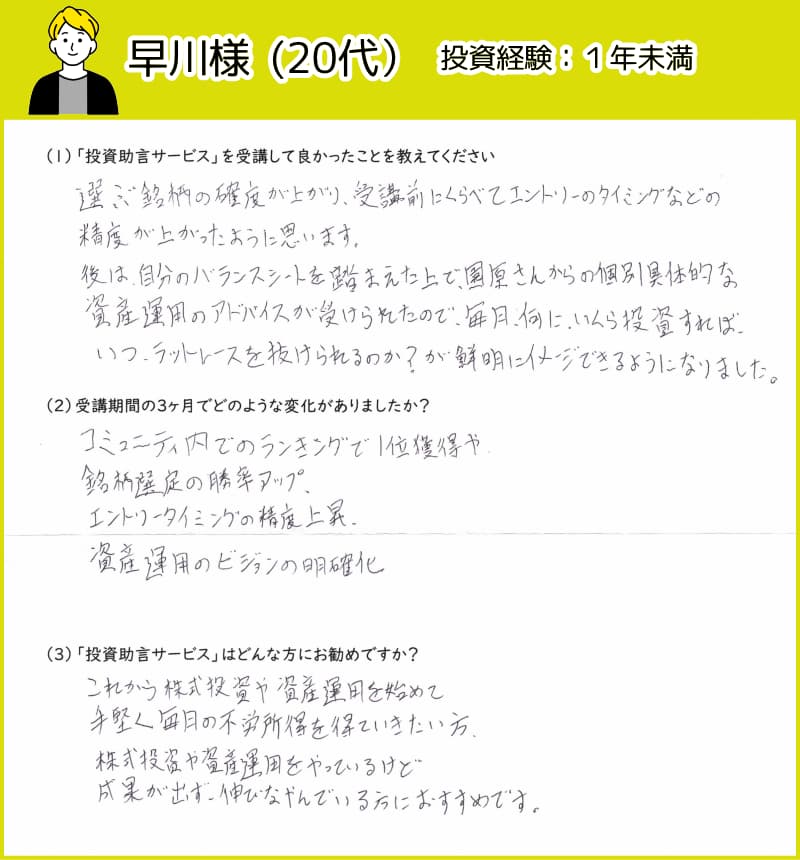 早川様（20代） 投資経験：１年未満
(1)「投資助言サービス」を受講して良かったことを教えてください
選ぶ銘柄の確度が上がり、受講前にくらべてエントリーのタイミングなどの
精度が上がったように思います。
後は、自分のバランスシートを踏まえた上で、園原さんからの個別具体的な
資産運用のアドバイスが受けられたので、毎月、何に、いくら投資すれば、
いつ、ラットレースを抜けられるのか？が鮮明にイメージできるようになりました。
(2)受講期間の3ヶ月でどのような変化がありましたか？
コミュニティ内でのランキングで1位獲得や
銘柄選定の勝率アップ、
エントリータイミングの精度上昇、
資産運用のビジョンの明確化
(3)「投資助言サービス」はどんな方にお勧めですか？
これから株式投資や資産運用を始めて
手堅く毎月の不労所得を得ていきたい方、
株式投資や資産運用をやっているけど
成果が出ず、伸びなやんでいる方におすすめです。